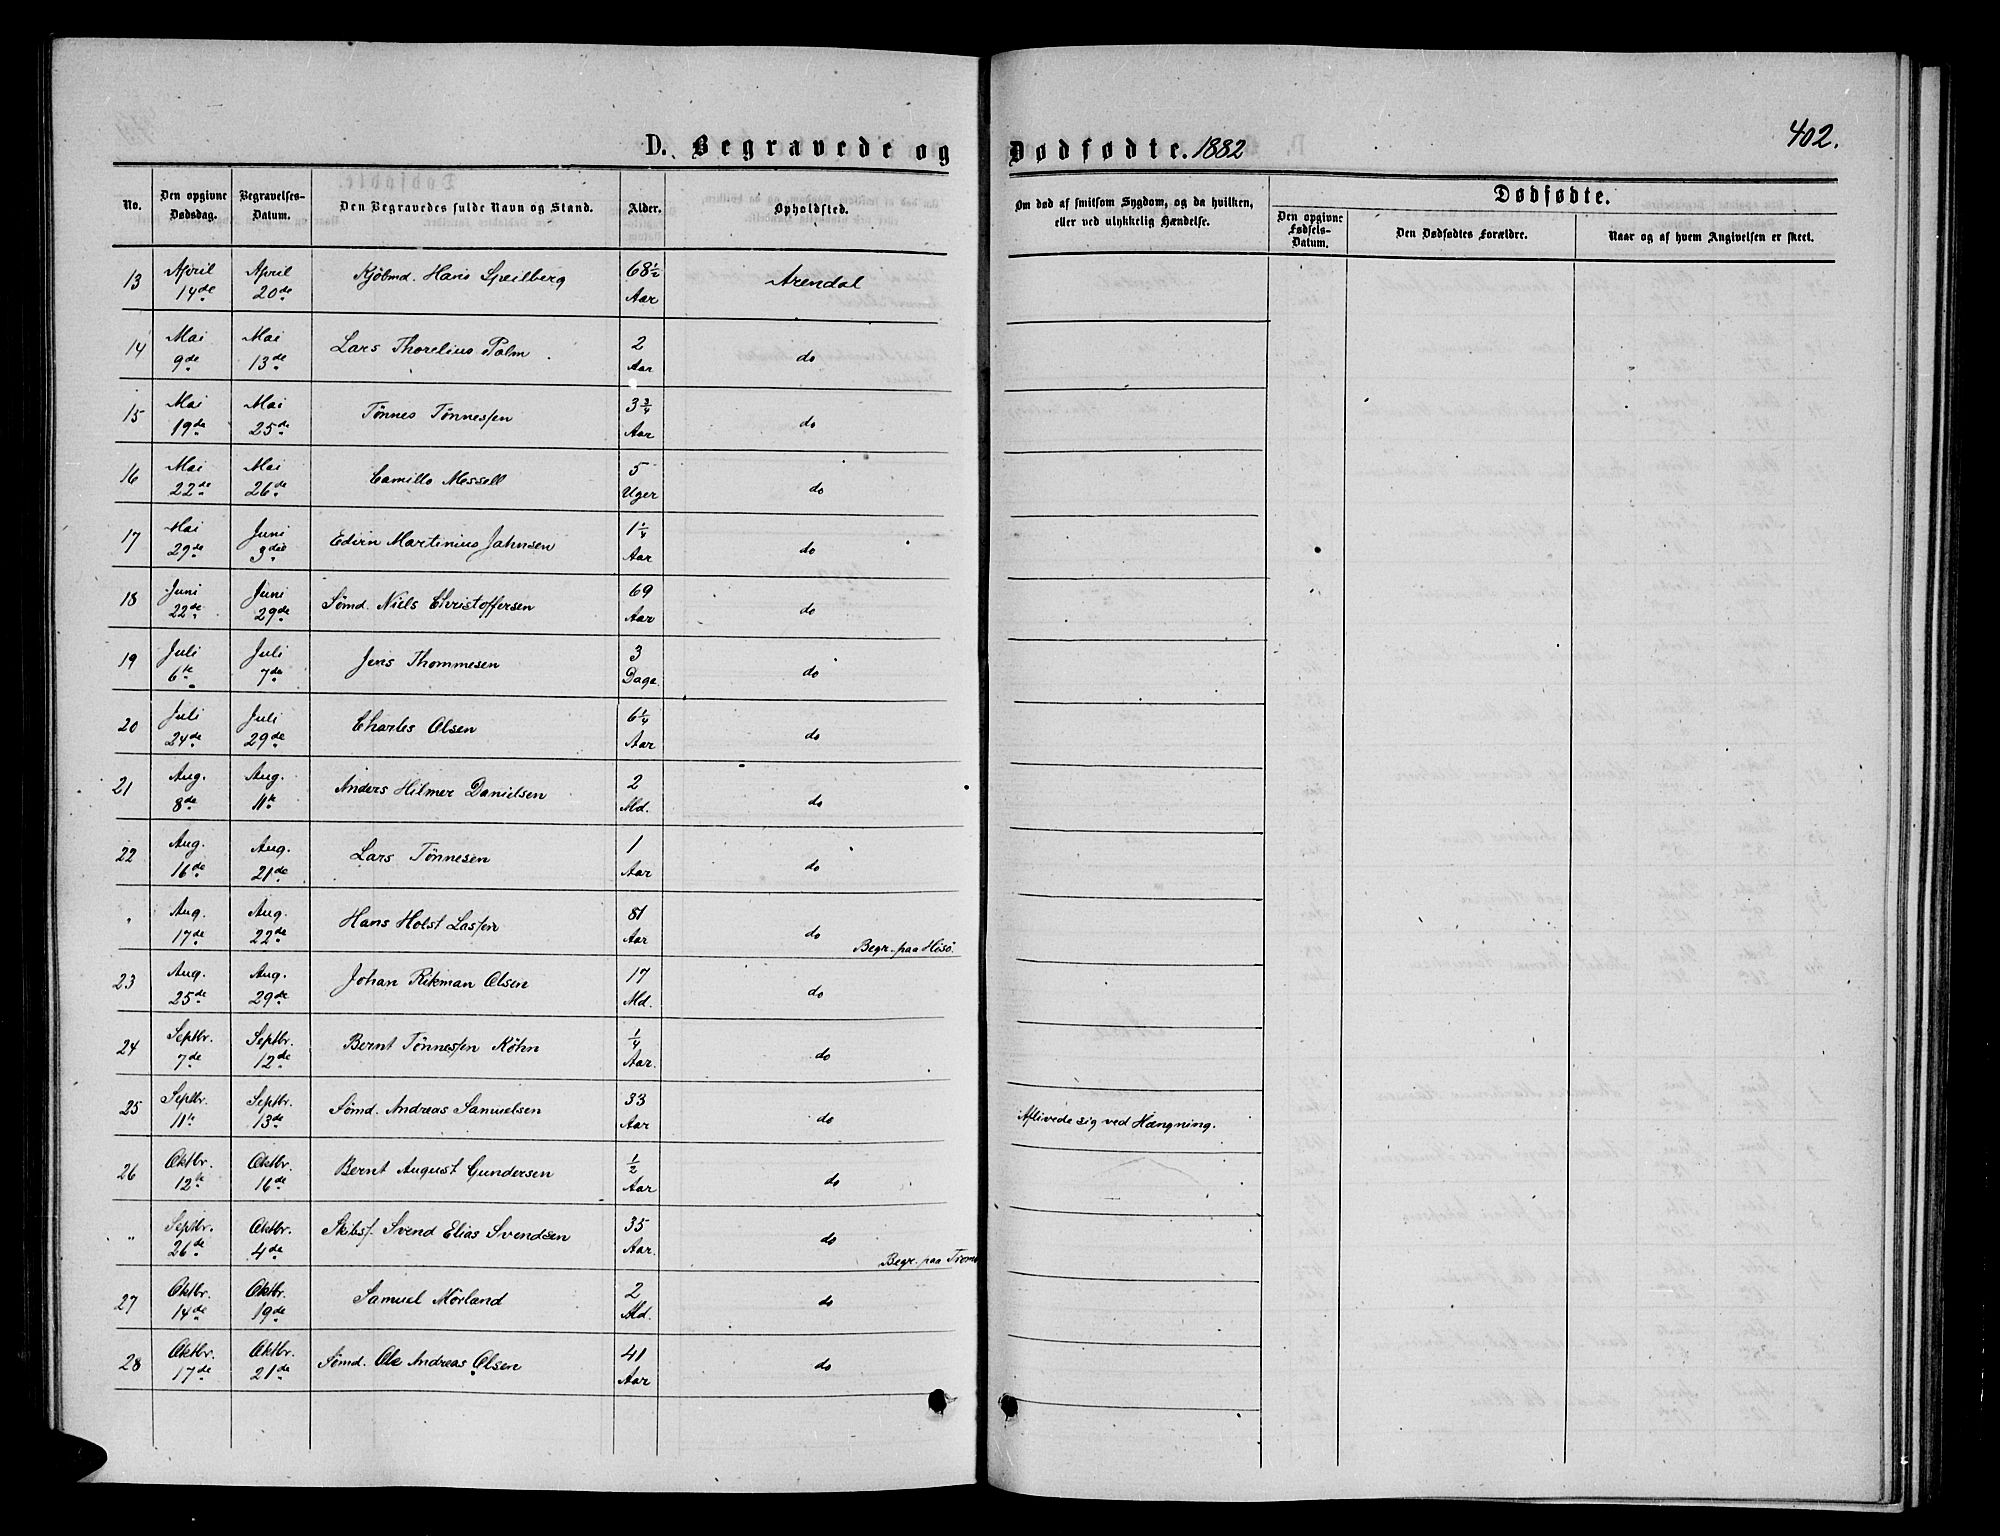 402.
D. Begravede og Dødfødte. 1882
No.
Den opgivne Dødsdag.
Begravelses-Datum.
Den Begravedes fulde Navn og Stand.
Alder.
Opholdsted.
Om død af smitsom Sygdom, og da hvilken, eller ved ulykkelig Hændelse.
Dødfødte.
Den opgivne Fødsels-Datum.
Den Dødfødtes Forældre.
Naar og af hvem Angivelsen er skeet.
13 April 14de April 20de Kjøbmd. Hans Speilberg 68 1/2 Aar Arendal
14 Mai 9de Mai 13de Lars Thorelius Palm 2 Aar do
15 Mai 19de Mai 25de Tønnes Tønnessen 3 3/4 Aar do
16 Mai 22de Mai 26de Camillo Messell 5 Uger do
17 Mai 29de Juni 3die Edvin Martinius Jahnsen 1 1/4 Aar do
18 Juni 22de Juni 29de Sømd. Niels Christoffersen 69 Aar do
19 Juli 6te Juli 7de Jens Thommesen 3 Dage do
20 Juli 24de Juli 29de Charles Olsen 6 1/4 Aar do
21 Aug. 8de Aug. 11te Anders Hilmer Danielsen 2 Md. do
22 Aug. 16de Aug. 21de Lars Tønnesen 1 Aar do
" Aug. 17de Aug. 22de Hans Holst Lassen 81 Aar do Begr. paa Hisø.
23 Aug. 25de Aug. 29de Johan Rikman Olsen 17 Md. do
24 Septbr. 7de Septbr. 12de Bernt Tønnessen Køhn 1/4 Aar. do
25 Septbr. 11te Septbr. 13de Sømd. Andreas Samuelsen 33 Aar do Aflivede sig ved Hængning.
26 Oktbr. 12te Oktbr. 16de Bernt August Gundersen 1/2 Aar do
" Septbr. 26de Oktbr. 4de Skibsf. Svend Elias Svendsen 35 Aar. do Begr. paa Tromø
27 Oktbr. 14de Oktbr. 19de Samuel Mørland 2 Md. do
28 Oktbr. 17de Oktbr. 21de Sømd. Ole Andreas Olsen 41 Aar do